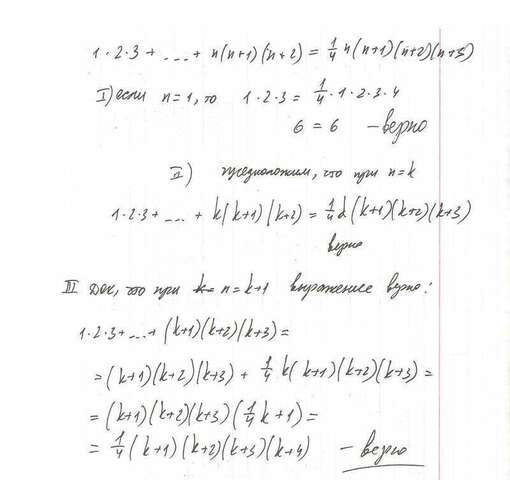 1·2·3 + ... + n(n+1)(n+2) = 1/4 n(n+1)(n+2)(n+3)
I) если n=1, то 1·2·3 = 1/4·1·2·3·4
6 = 6 – верно
II) предположим, что при n=k
1·2·3 + ... + k(k+1)(k+2) = 1/4 k(k+1)(k+2)(k+3)
верно
III Док, что при n=k+1 выражение верно:
1·2·3+...+ (k+1)(k+2)(k+3) =
= (k+1)(k+2)(k+3) + 1/4 k(k+1)(k+2)(k+3) =
= (k+1)(k+2)(k+3)(1/4 k+1) =
= 1/4 (k+1)(k+2)(k+3)(k+4) – верно